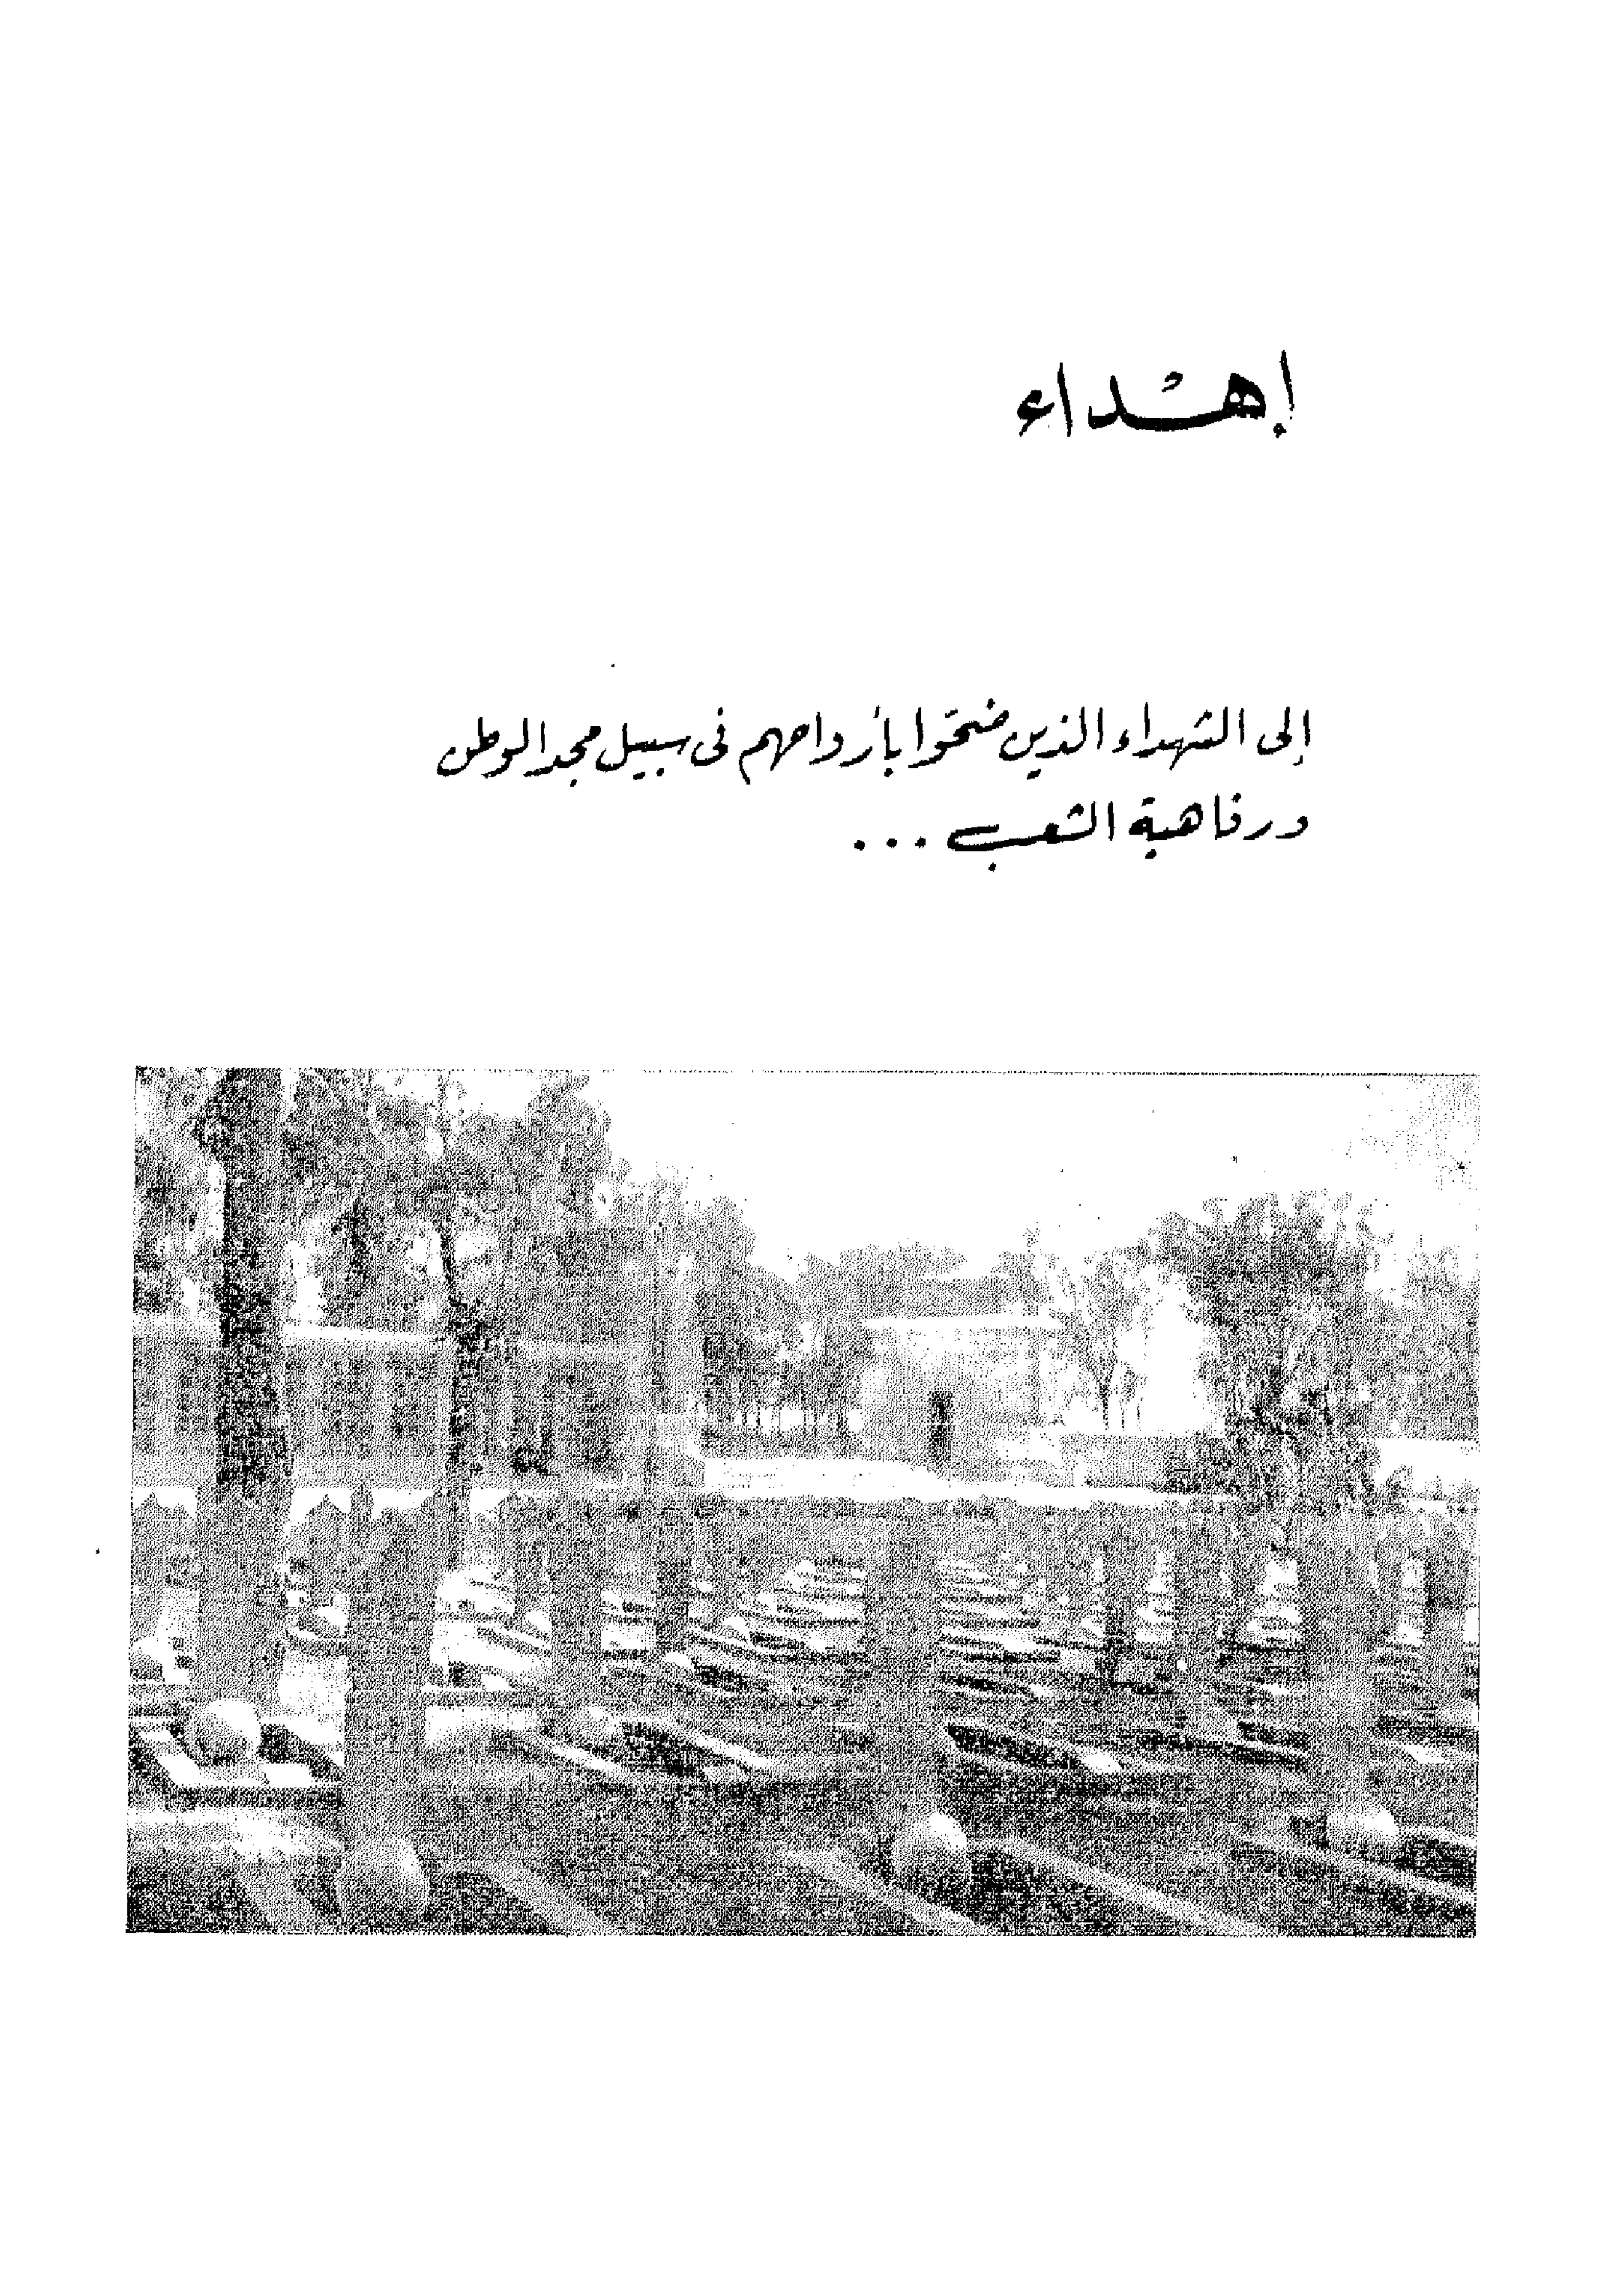 إهْداء
إلى الشهداء الذين ضحَّوا بأرواحهم فى سبيل مجد الوطن
ورفاهية الشعب ...